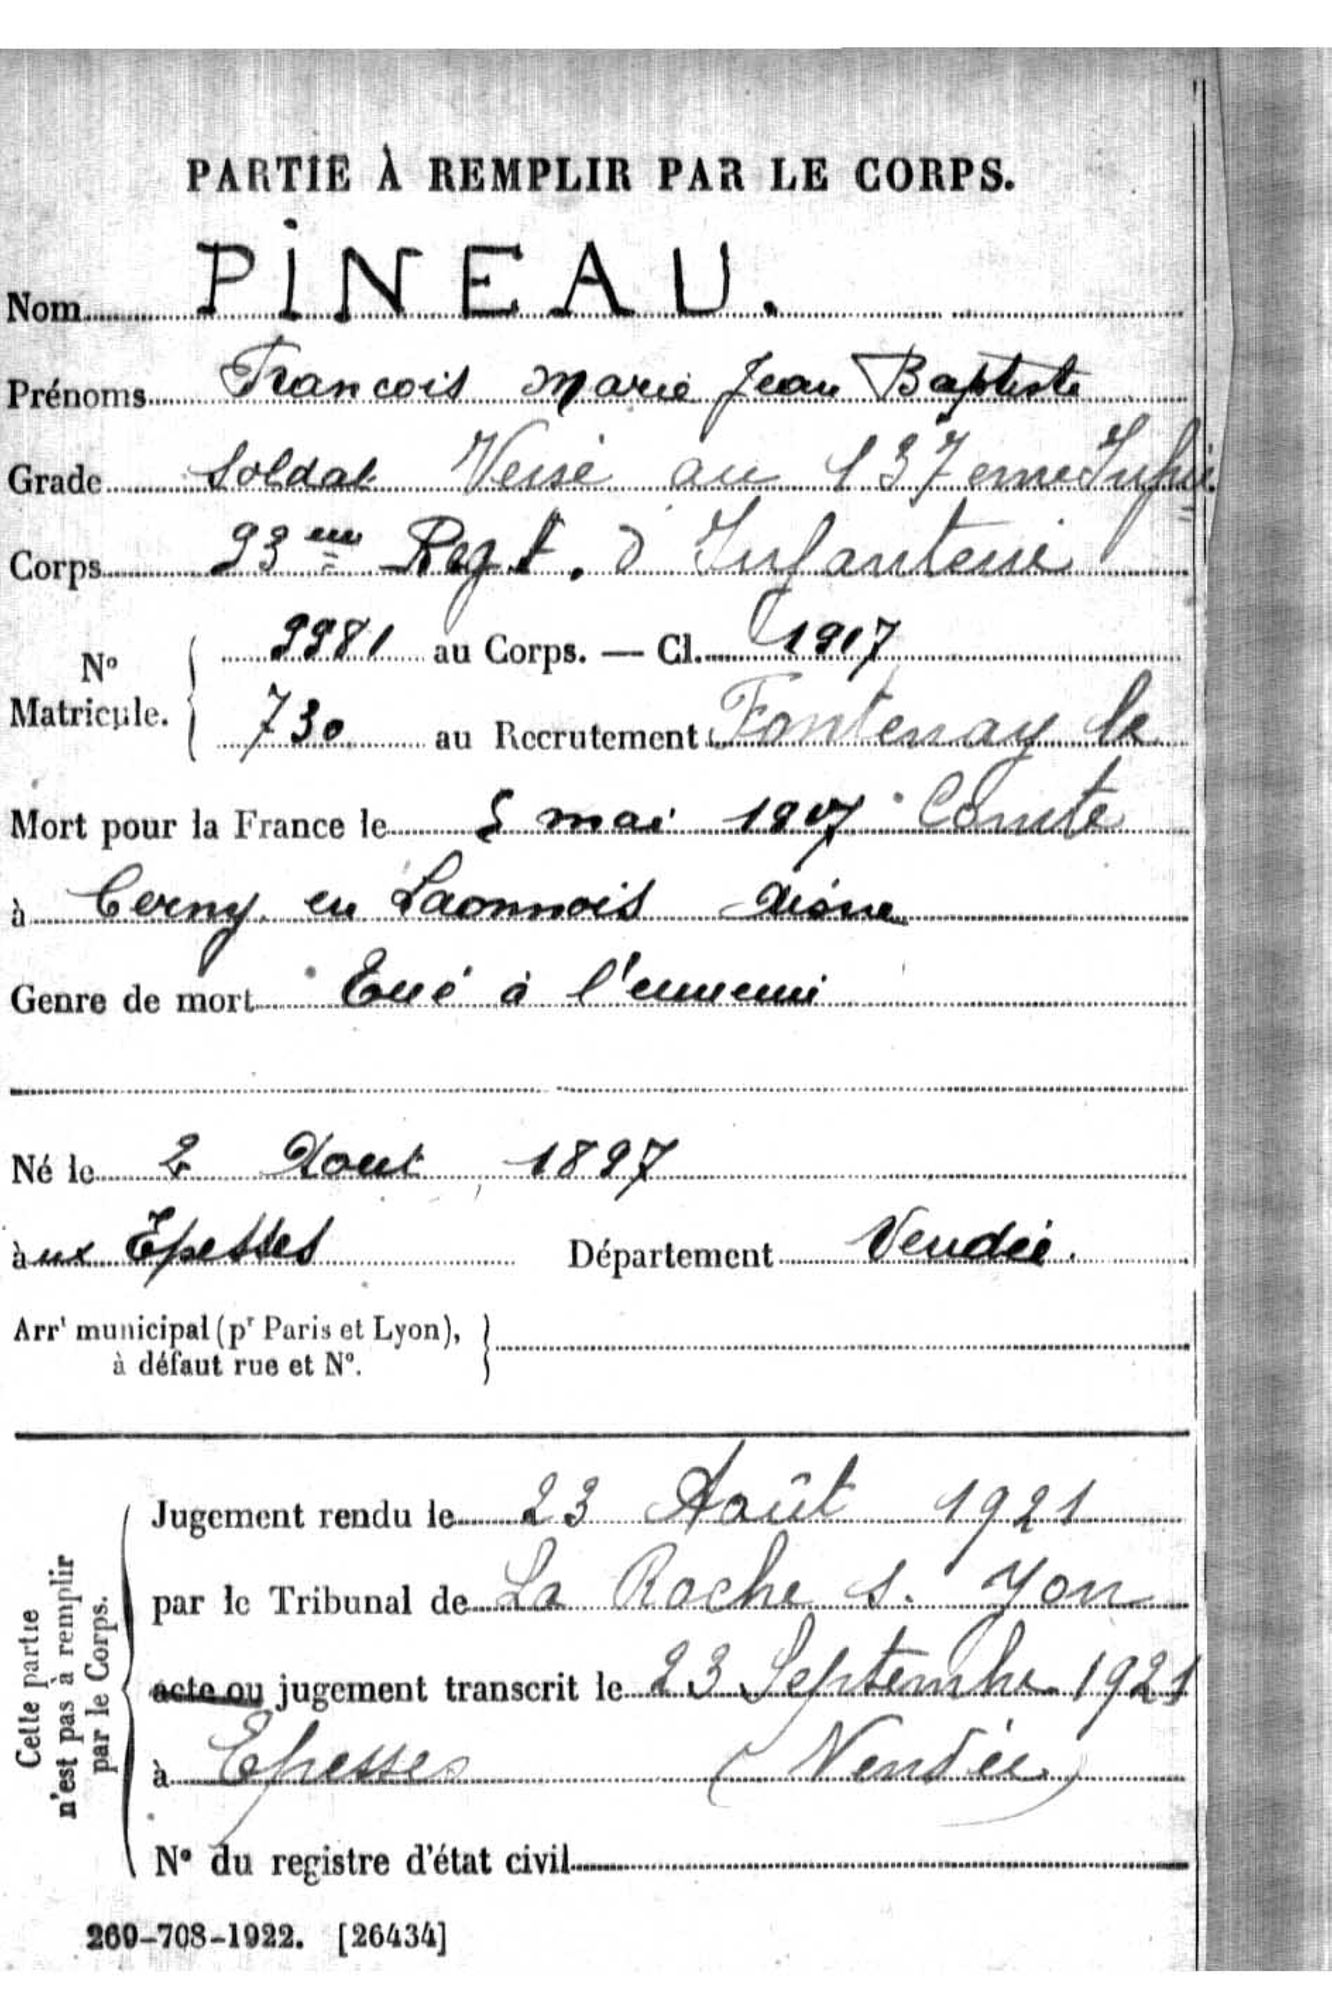 PARTIE À REMPLIR PAR LE CORPS.
Nom PINEAU.
Prénoms Francois Marie Jean Baptiste
Grade Soldat Versé au 137eme Infie.
Corps 93eme Regt. d'Infanterie
N° Matricule. 9981 au Corps. — Cl. 1917
730 au Recrutement Fontenay le
Mort pour la France le 5 mai 1917 Comte
à Cerny en Laonnois Aisne
Genre de mort Tué à l'ennemi
Né le 2 Aout 1897
aux Epesses Département Vendée.
Arrt municipal (pr Paris et Lyon),
à défaut rue et N°.
Cette partie
n'est pas à remplir
par le Corps.
Jugement rendu le 23 Août 1921
par le Tribunal de La Roche s. Yon
acte ou jugement transcrit le 23 Septembre 1921
à Epesses (Vendée)
N° du registre d'état civil
260-708-1922. [26434]